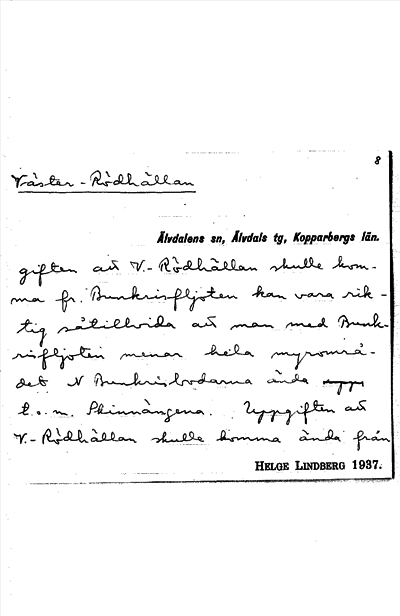 8
Väster-Rödhällan
Älvdalens sn, Älvdals tg, Kopparbergs län.
giften att V.-Rödhällan skulle kom-
ma fr. Bunkrisfljoten kan vara rik-
tig såtillvida att man med Bunk-
risfljoten menar hela myrområ-
det N Bunkrisbodarna ända
t.o.m. Skinnängena. Uppgiften att
V.-Rödhällan skulle komma ända från
HELGE LINDBERG 1937.